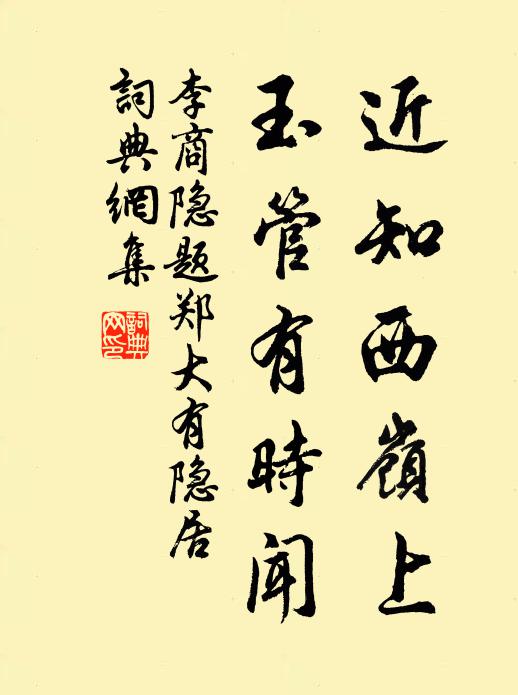 近知西嶺上
玉管有時聞
李商隐题郑大有隐居
詞典網集
詞典网印